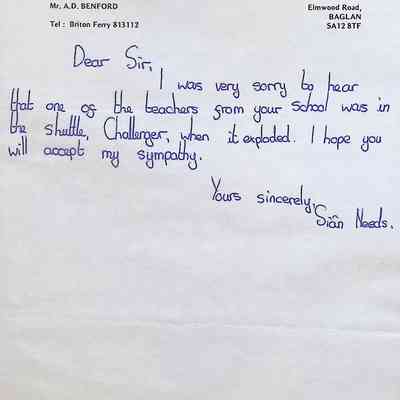 Mr. A.D. BENFORD
Elmwood Road,
BAGLAN
SA12 8TF
Tel : Briton Ferry 813112
Dear Sir,
I was very sorry to hear
that one of the teachers from your school was in
the shuttle, Challenger, when it exploded. I hope you
will accept my sympathy.
Yours sincerely,
Siân Needs.